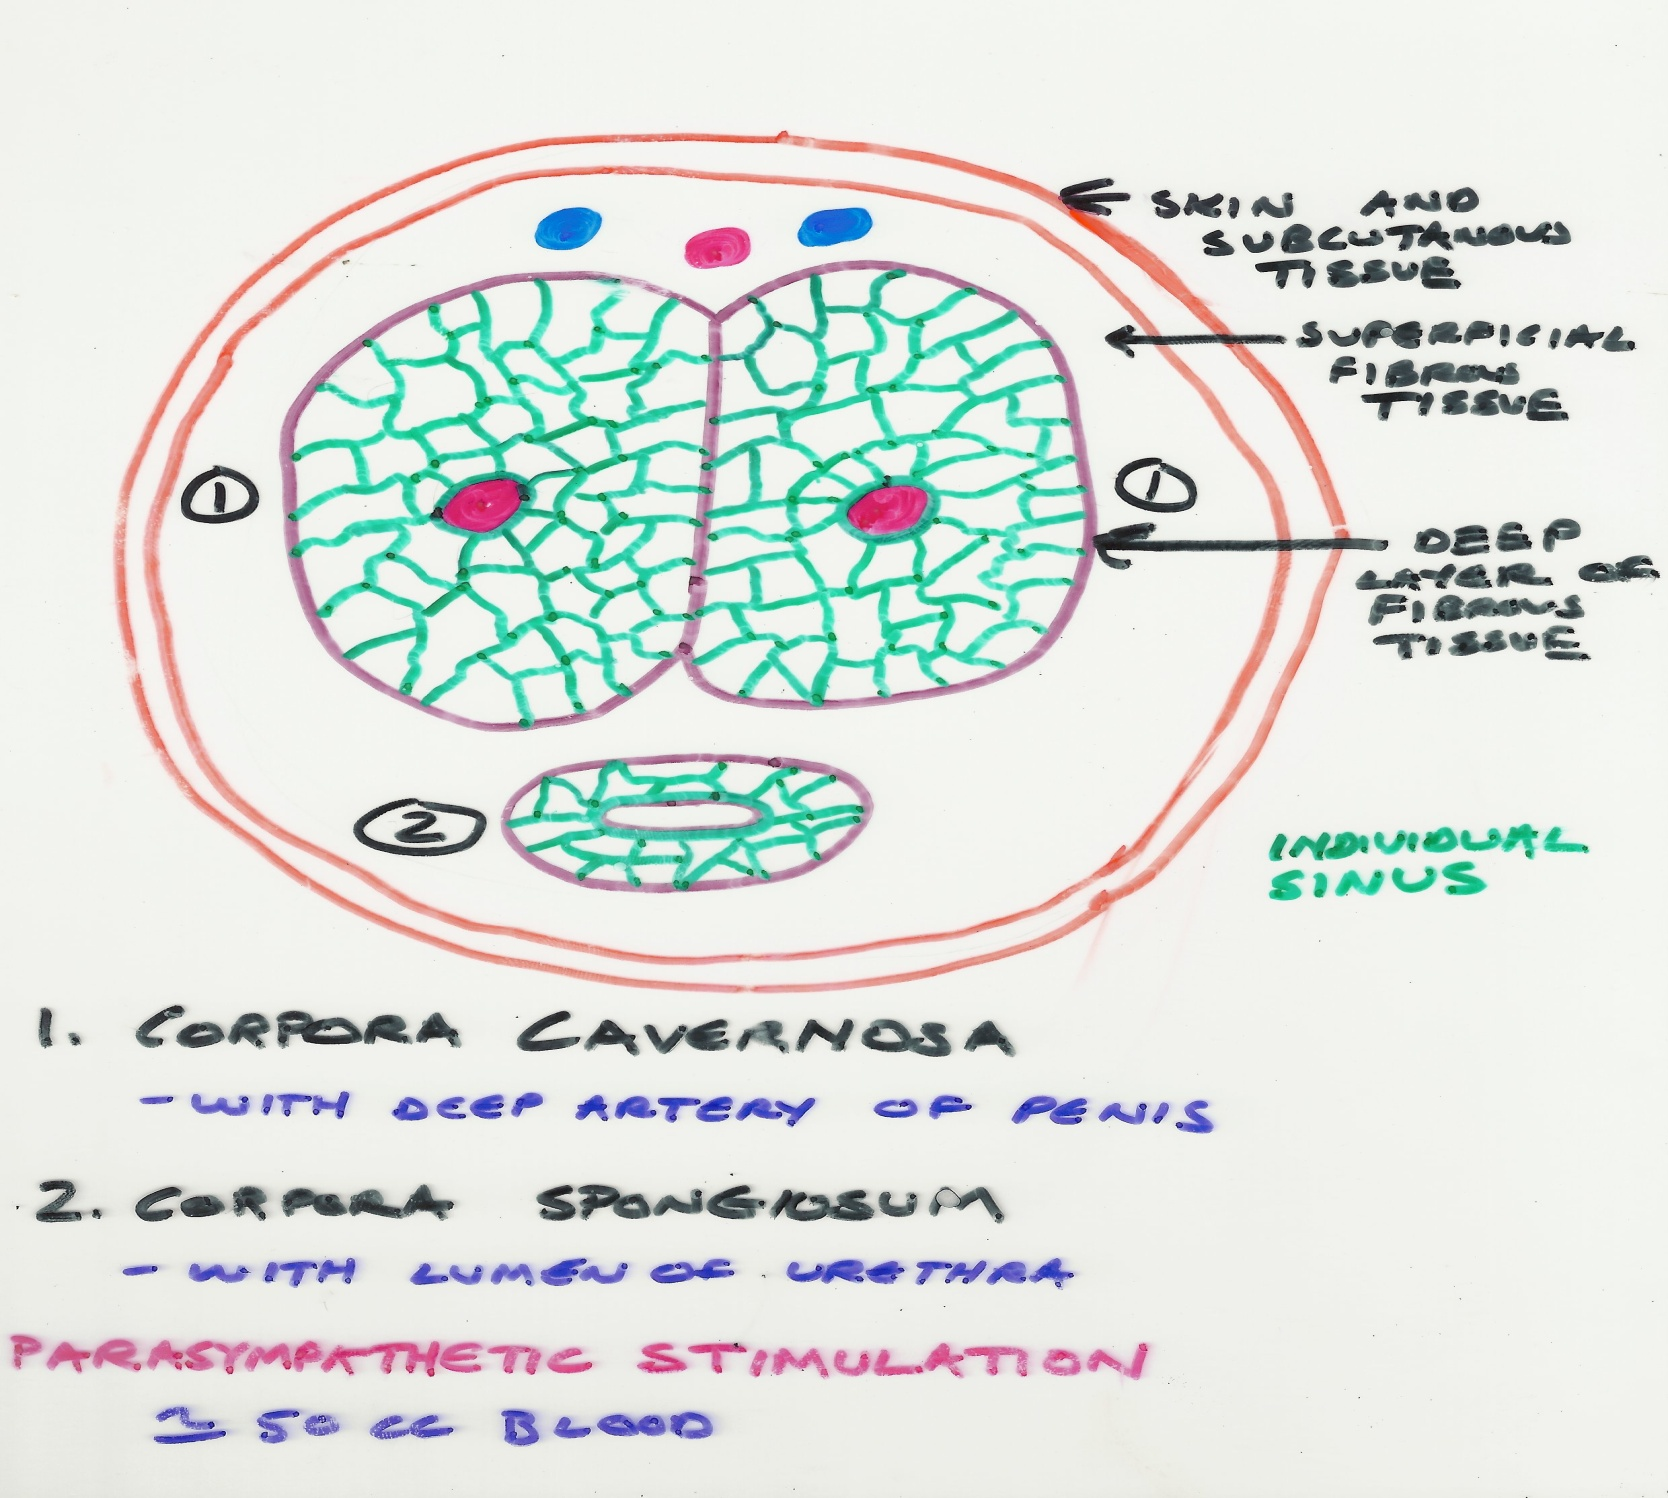 SKIN AND
SUBCUTANOUS
TISSUE
SUPERFICIAL
FIBROUS
TISSUE
1
1
DEEP
LAYER OF
FIBROUS
TISSUE
2
INDIVIDUAL
SINUS
1. CORPORA CAVERNOSA
- WITH DEEP ARTERY OF PENIS
2. CORPORA SPONGIOSUM
- WITH LUMEN OF URETHRA
PARASYMPATHETIC STIMULATION
≃ 50 CC BLOOD